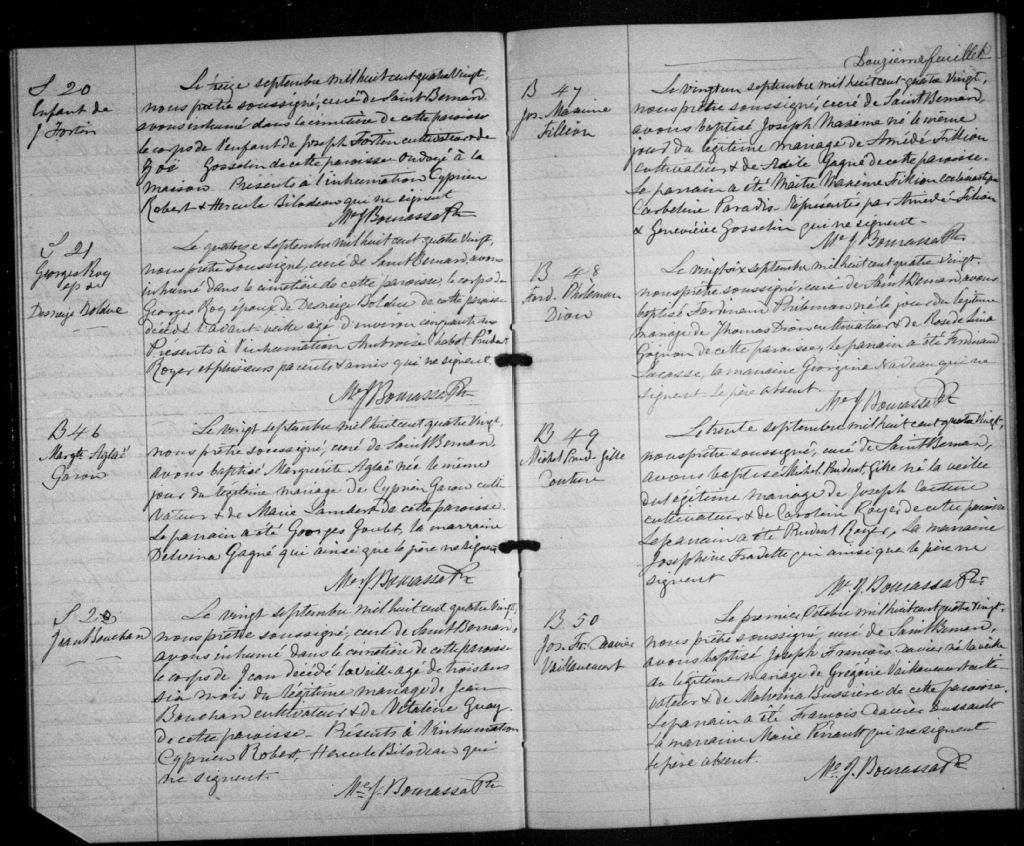 S 20
Enfant de
J Fortin
Le treize septembre mil huit cent quatre vingt,
nous prêtre soussigné, curé de Saint Bernard
avons inhumé dans le cimetière de cette paroisse
le corps de l'enfant de Joseph Fortin cultivateur & de
Zoë Gosselin de cette paroisse ondoyé à la
maison Présents à l'inhumation Cyprien
Robert & Hercule Bilodeau qui ne signent
Me J Bourassa Ptr
S 21
Georges Roy
ep de
Desneige Bolduc
Le quatorze septembre mil huit cent quatre vingt,
nous prêtre soussigné, curé de Saint Bernard avons
inhumé dans le cimetière de cette paroisse, le corps de
Georges Roy époux de Desneige Bolduc de cette paroisse
décédé l'avant-veille agé d'environ cinquante ans
Présents à l'inhumation Ambroise Chabot Prudent
Royer et plusieurs parents & amis qui ne signent
Me J Bourassa Ptr
B 46
Margte Aglaé
Garon
Le vingt septembre mil huit cent quatre vingt,
nous prêtre soussigné, curé de Saint Bernard
avons baptisé Marguerite Aglaé née le même
jour du légitime mariage de Cyprien Garon culti
vateur & de Marie Lambert de cette paroisse.
Le parrain a été Georges Goulet, la marraine
Delvina Gagné qui ainsi que le père ne signent
Me J Bourassa Ptr
S 22
Jean Bouchan
Le vingt septembre mil huit cent quatre vingt,
nous prêtre soussigné, curé de Saint Bernard
avons inhumé dans le cimetière de cette paroisse
le corps de Jean décédé la veille agé de trois ans
six mois du légitime mariage de Jean
Bouchan cultivateur & de Vitaline Guay
de cette paroisse - Présents à l'inhumation
Cyprien Robert, Hercule Bilodeau qui
ne signent.
Me J. Bourassa Ptr
Douzième feuillet
B 47
Jos. Maxime
Fillion
Le vingt un septembre mil huit cent quatre vingt,
nous prêtre soussigné, curé de Saint Bernard,
avons baptisé Joseph Maxime né le même
jour du légitime mariage de Amédé Fillion
cultivateur & de Adèle Gagné de cette paroisse.
Le parrain a été Maître Maxime Fillion
Paradis Représentés par Amédé Fillion
& Geneviève Gosselin qui ne signent.
Me J Bourassa Ptr
B 48
Ferd. Philémon
Dion
Le vingt six septembre mil huit cent quatre vingt
nous prêtre soussigné, curé de Saint Bernard, avons
baptisé Ferdinand Philémon né le jour du légitime
mariage de Thomas Dion cultivateur & de Rose de Lima
Gagnon de cette paroisse, le parrain a été Ferdinand
Lacasse, la marraine Georgina Nadeau qui ne
signent - le père absent.
Me J Bourassa Ptr
B 49
Michel Prud. Gille
Couture
Le trente septembre mil huit cent quatre vingt,
nous prêtre soussigné, curé de Saint Bernard,
avons baptisé Michel Prudent Gille né la veille
du légitime mariage de Joseph Couture
cultivateur & de Caroline Royer de cette paroisse
Le parrain a été Prudent Royer, la marraine
Josephine Fradette qui ainsi que le père ne
signent
Me J. Bourassa Ptr
B 50
Jos. Fr. Xavier
Vaillancourt
Le premier Octobre mil huit cent quatre vingt,
nous prêtre soussigné, curé de Saint Bernard,
avons baptisé Joseph François Xavier né la veille
du légitime mariage de Grégoire Vaillancourt culti
vateur & de Malvina Bussière de cette paroisse.
Le parrain a été François Xavier Dussault
la marraine Marie Perrault qui ne signent
le père absent.
Me J. Bourassa Ptr